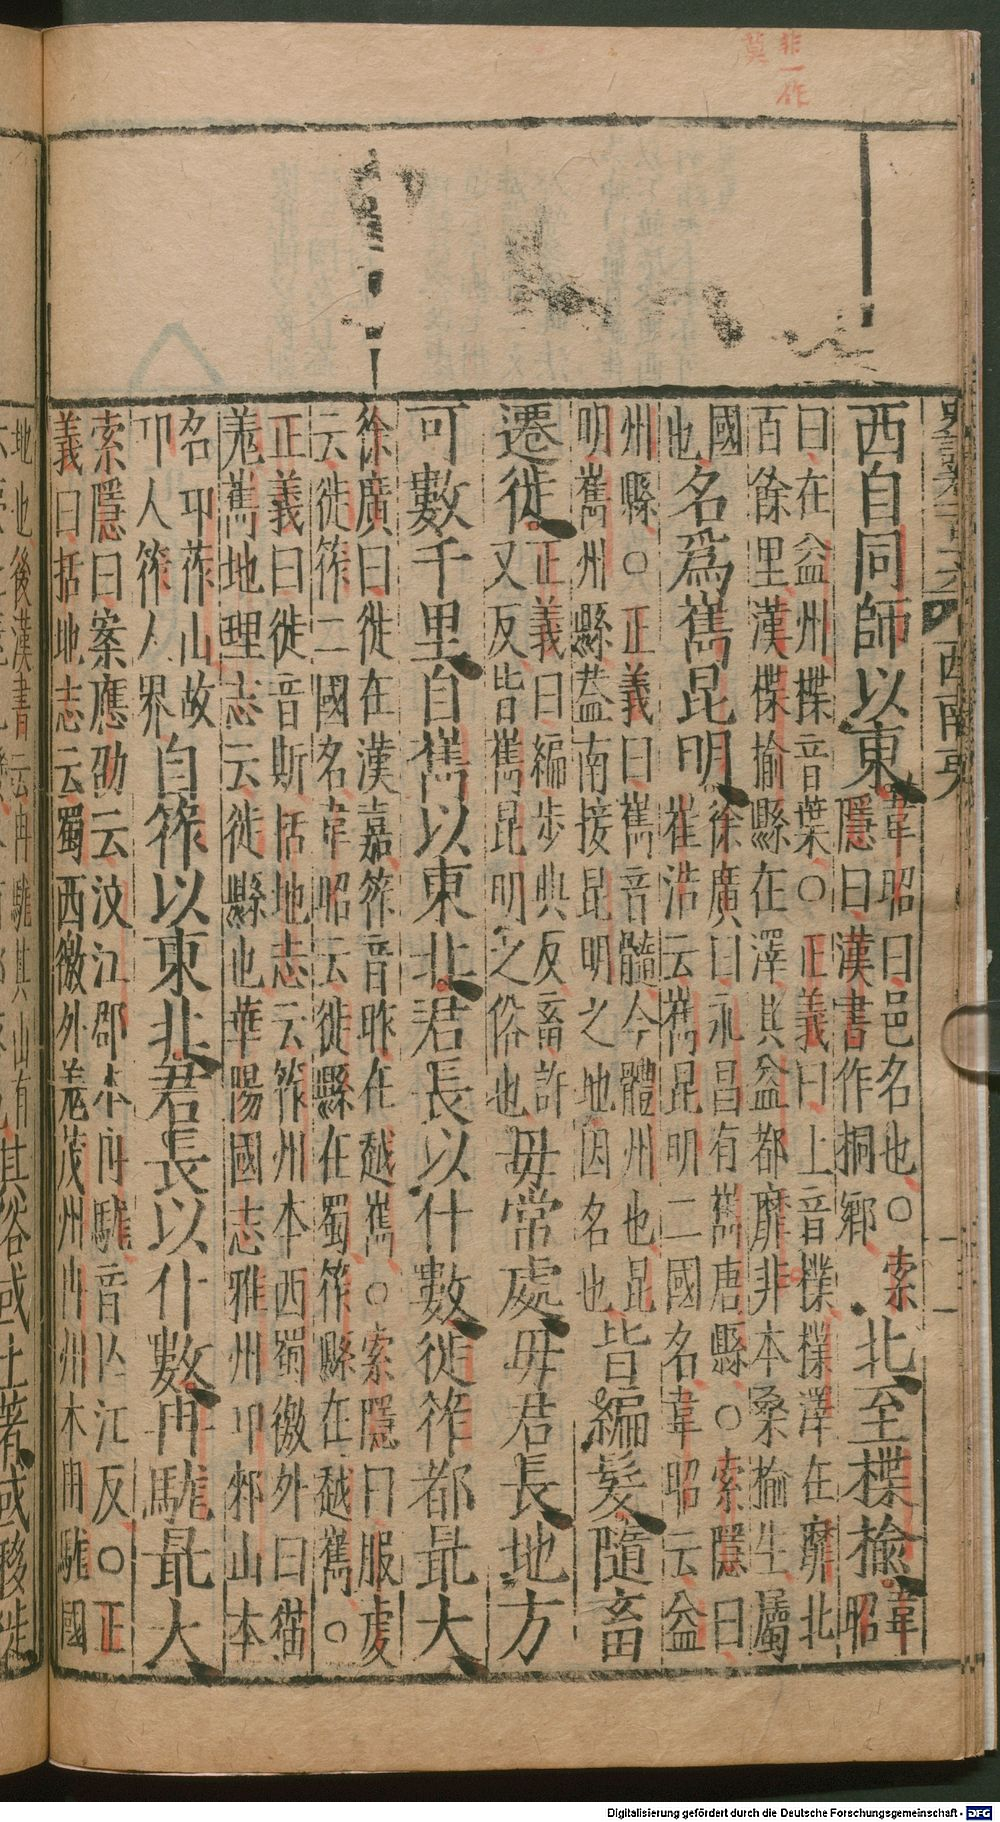 非一作
莫
西南夷
西自同師以東韋昭曰邑名也○索
隱曰漢書作桐鄉北至楪榆韋
昭
曰在益州楪音葉○正義曰上音楪楪澤在靡北
百餘里漢楪揄縣在澤其益都靡非本桑榆生屬
國
也名爲巂昆明徐廣曰永昌有巂唐縣○索隱曰
崔浩云巂昆明二國名韋昭云益
州縣○正義曰巂音髓今體州也昆
明巂州縣葢南接昆明之地因名也皆編髮隨畜
遷徙正義曰編步典反畜許
又反皆巂昆明之俗也毋常處毋君長地方
可數千里自巂以東北君長以什數徙筰都最大
徐廣曰徙在漢嘉筰音昨在越巂○索隱曰服虔
云徙筰二國名韋昭云徙縣在蜀筰縣在越巂○
正義曰徙音斯括地志云筰州本西蜀徼外曰猫
羌巂地理志云徙縣也華陽國志雅州邛郲山本
名邛莋山故
邛人筰人界自筰以東北君長以什數冉駹最大
索隱曰案應劭云汶江郡本冉駹音亡江反○正
義曰括地志云蜀西徼外羌茂州冉州本冉駹國
地也後漢書云冉駹其山有
其俗或土著或移徙
Digitalisierung gefördert durch die Deutsche Forschungsgemeinschaft - DFG